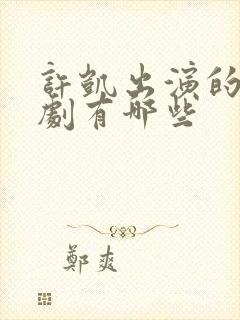 許凱出演的
劇有哪些
鄭爽